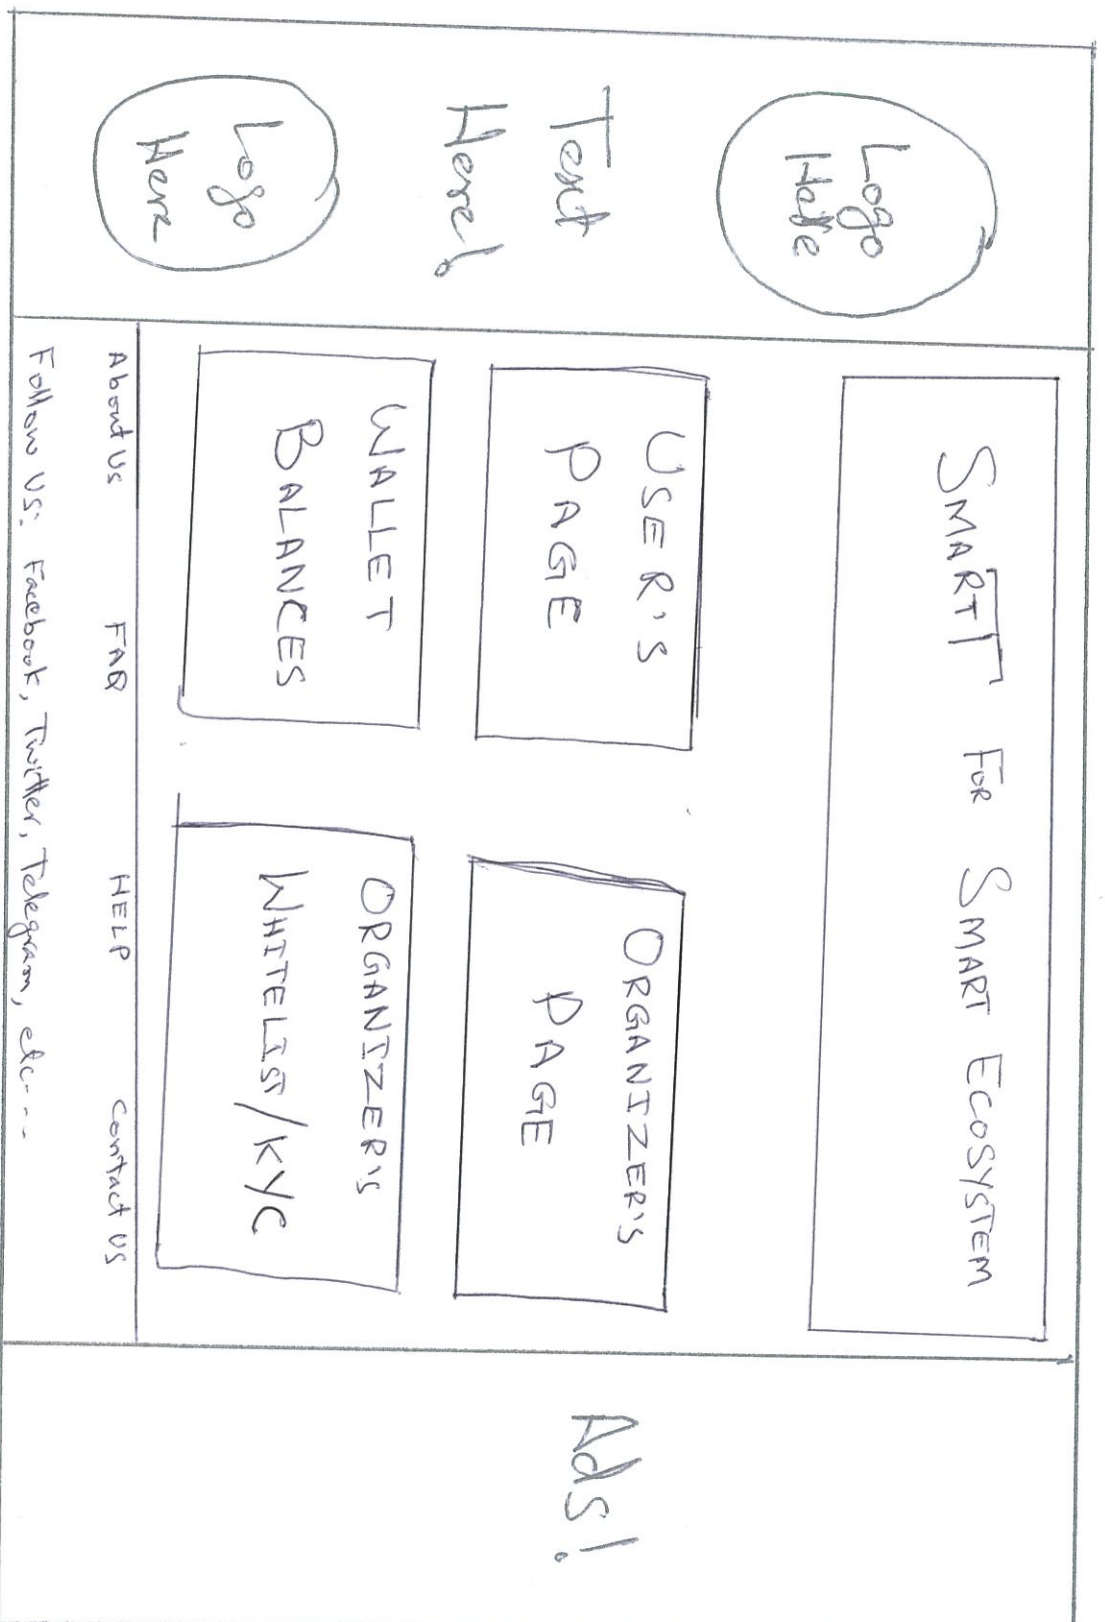 Logo
Here
Text
Here!
Logo
Here
SMARTT FOR SMART ECOSYSTEM
USER'S
PAGE
ORGANIZER'S
PAGE
WALLET
BALANCES
ORGANIZER'S
WHITELIST/KYC
About Us FAQ HELP Contact US
Follow US: Facebook, Twitter, Telegram, etc----
Ads!